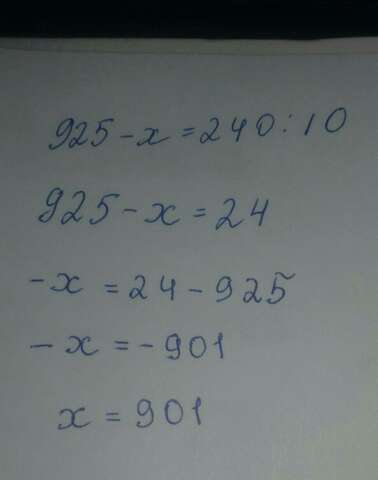 925 - x = 240 : 10
925 - x = 24
- x = 24 - 925
- x = - 901
x = 901